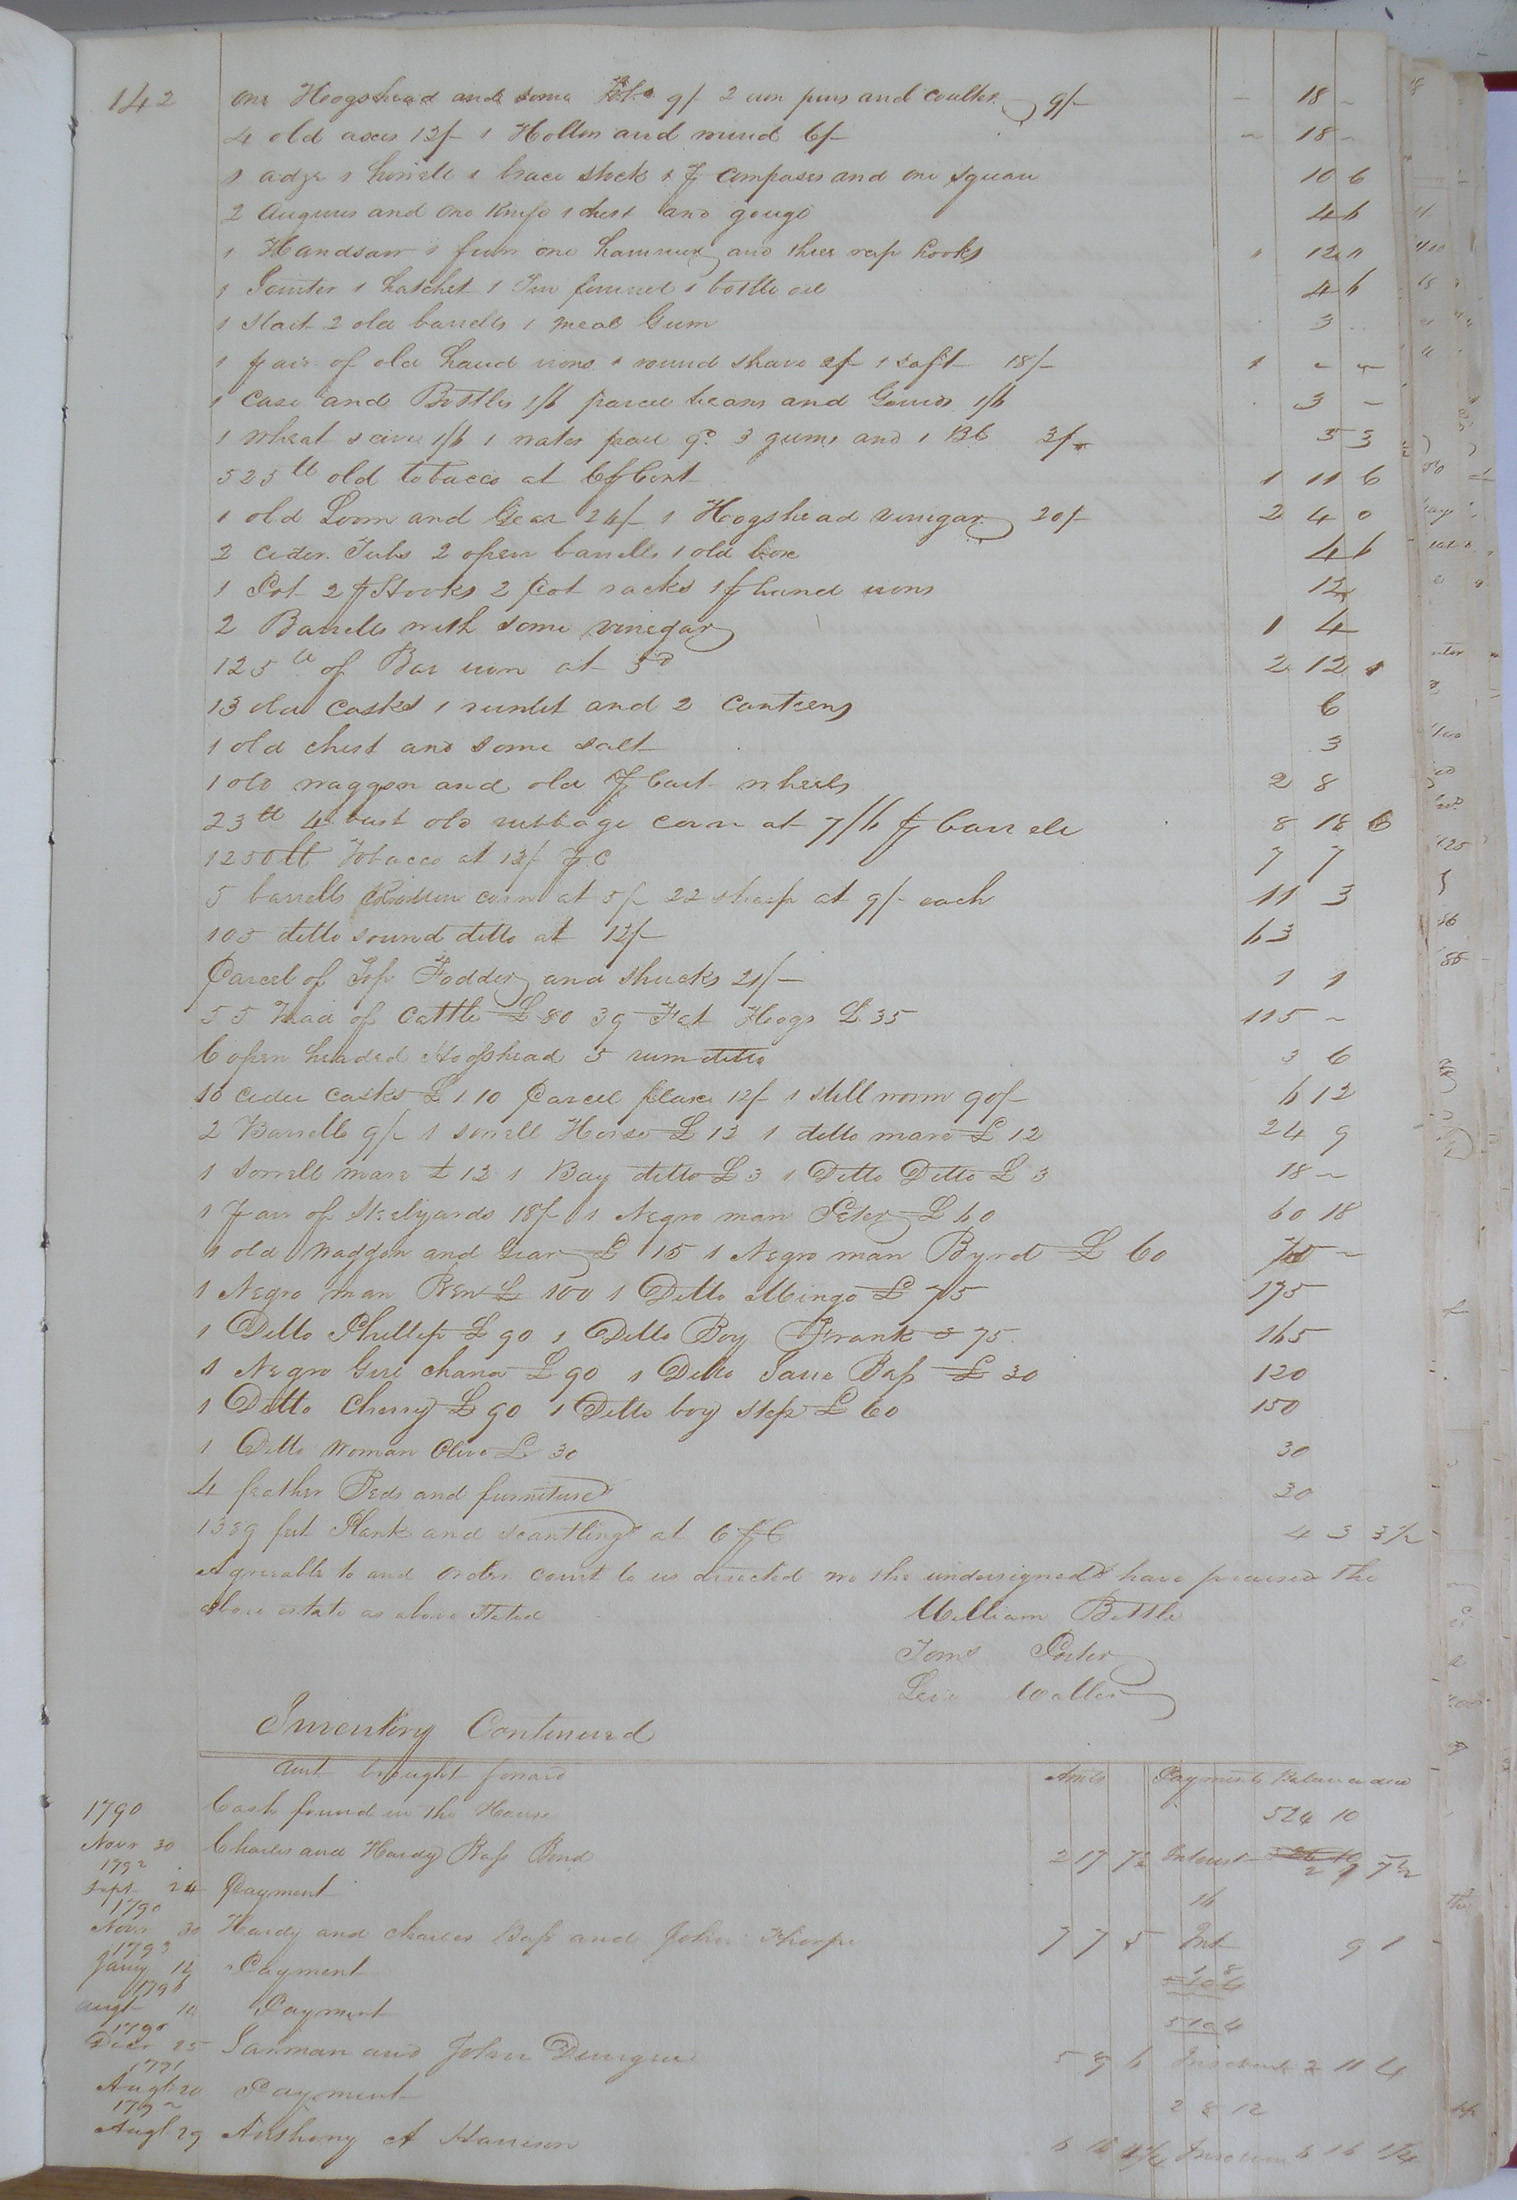 142
one Hogshead and some 9/ 2 iron pins and coulter 9/- - 18 -
4 old axes 12/- 1 and 6/- - 18 -
1 adze 1 howell 1 brace stock 1 pr compases and one square 10 6
2 Augures and one knife 1 chest and gouge 4 6
1 Handsaw 1 one hammer and three reap hooks " 12 "
1 Jointer 1 hatchet 1 funnel 1 bottle oil 4 6
1 2 old barrells 1 meal Gum 3
1 pair of old hand irons 1 round shave 2/- 1 18/- 1 - -
1 case and Bottles 1/6 parcel beans and 1/6 3 -
1 wheat 1/6 1 water do. 3 gums and 1 3/- 5 3
525 lb old tobacco at 6 p Cent 1 11 6
1 old Loom and Gear 24/- 1 Hogshead vinegar 20/- 2 4 0
2 cider Tubs 2 open barrells 1 old box 4 6
1 Pot 2 pr Hooks 2 Pot racks 1 pr hand irons 12
2 Barrells with some vinegar 1 4
125 lb of Bar iron at 5d 2 12 1
13 old casks 1 runlet and 2 canteens 6
1 old chest and some salt 3
1 old waggon and old pr Cart wheels 2 8
23 4 old rubbage corn at 7/6 p barrele 8 18 6
1250 lb Tobacco at 12/ p C 7 7
5 barrells Rotten corn at 5/ 22 sheep at 9/- each 11 3
105 ditto sound ditto at 12/- 63
Parcel of Top Fodder and shucks 21/- 1 1
55 head of Cattle £ 80 39 Fat Hogs £ 35 115 -
6 open headed Hogshead 5 rum ditto 3 6
10 cider casks £ 1 10 Parcel flax 12/- 1 still worm 90/- 6 12
2 Barrells 9/- 1 sorrell Horse £ 12 1 ditto mare £ 12 24 9
1 Sorrell mare £ 12 1 Bay ditto £ 3 1 Ditto Ditto £ 3 18 -
1 pair of Steelyards 18/- 1 Negro man Peter £ 60 60 18
1 old Waggon and Gear £ 15 1 Negro man Byrd £ 60 75 -
1 Negro man Ben £ 100 1 Ditto Mingo £ 75 175
1 Ditto Phillip £ 90 1 Ditto Boy Frank £ 75 165
1 Negro Girl £ 90 1 Ditto £ 30 120
1 Ditto Cherry £ 90 1 Ditto boy £ 60 150
1 Ditto Woman Olive £ 30 30
4 feather Beds and furniture 30
1389 feet Plank and scantling at 6 p C 4 3 3 1/2
Agreeable to and Order court to us directed we the undersigned have the
above estate as above stated William Bettle
Porter
Levi Waller
Inventory Continued
Amt brought forward Amts Payments Balance due
1790 Cash found in the House 524 10
Novr 30 Charles and Hardy Bass Bond 2 17 7 1/2 Interest 2 9 7 1/2
1792
Sept 24 Payment 16
1790
Novr 30 Hardy and Charles Bass and John Thorpe 7 7 5 Int 9 1
1793
Jany 12 Payment
1796
Augt 10 Payment 5 10 4
1790
Decr 25 and John 5 9 6 2 11 4
1791
Augt 20 Payment 2 8 12
1792
Augt 29 Anthony A Harrison